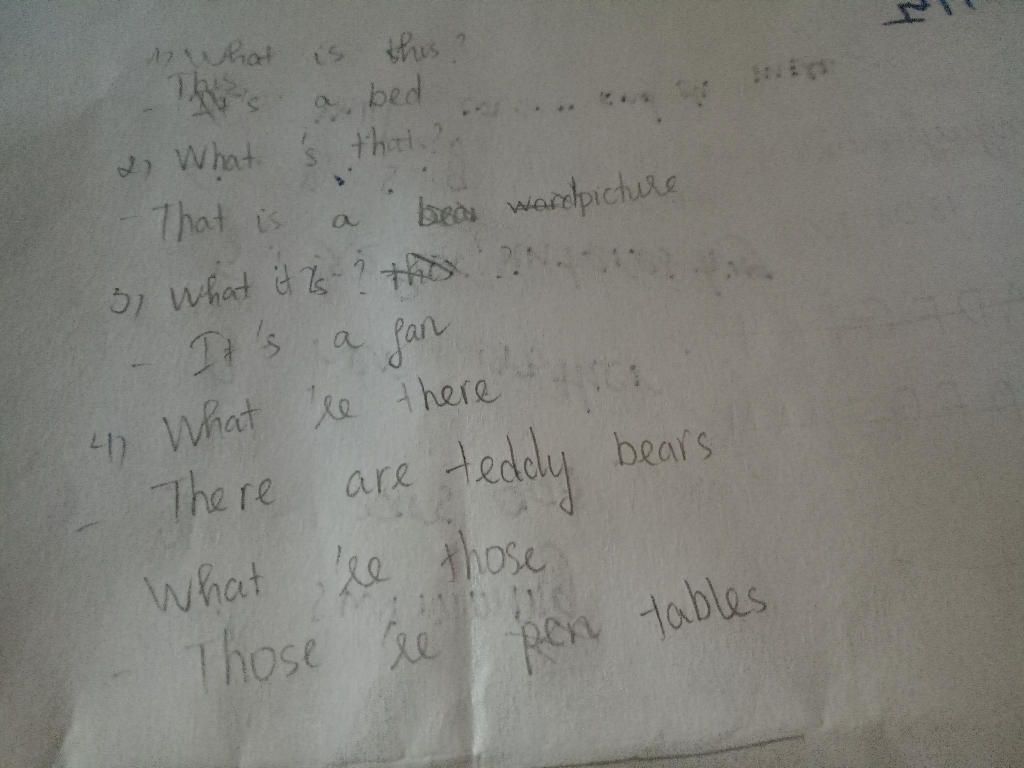 1) What is this?
- It's a bed
2) What 's that?
- That is a bear ward picture
3) What it is ? this ?
- It's a fan
4) What 're there
- There are teddy bears
What 're those
- Those 're pen tables